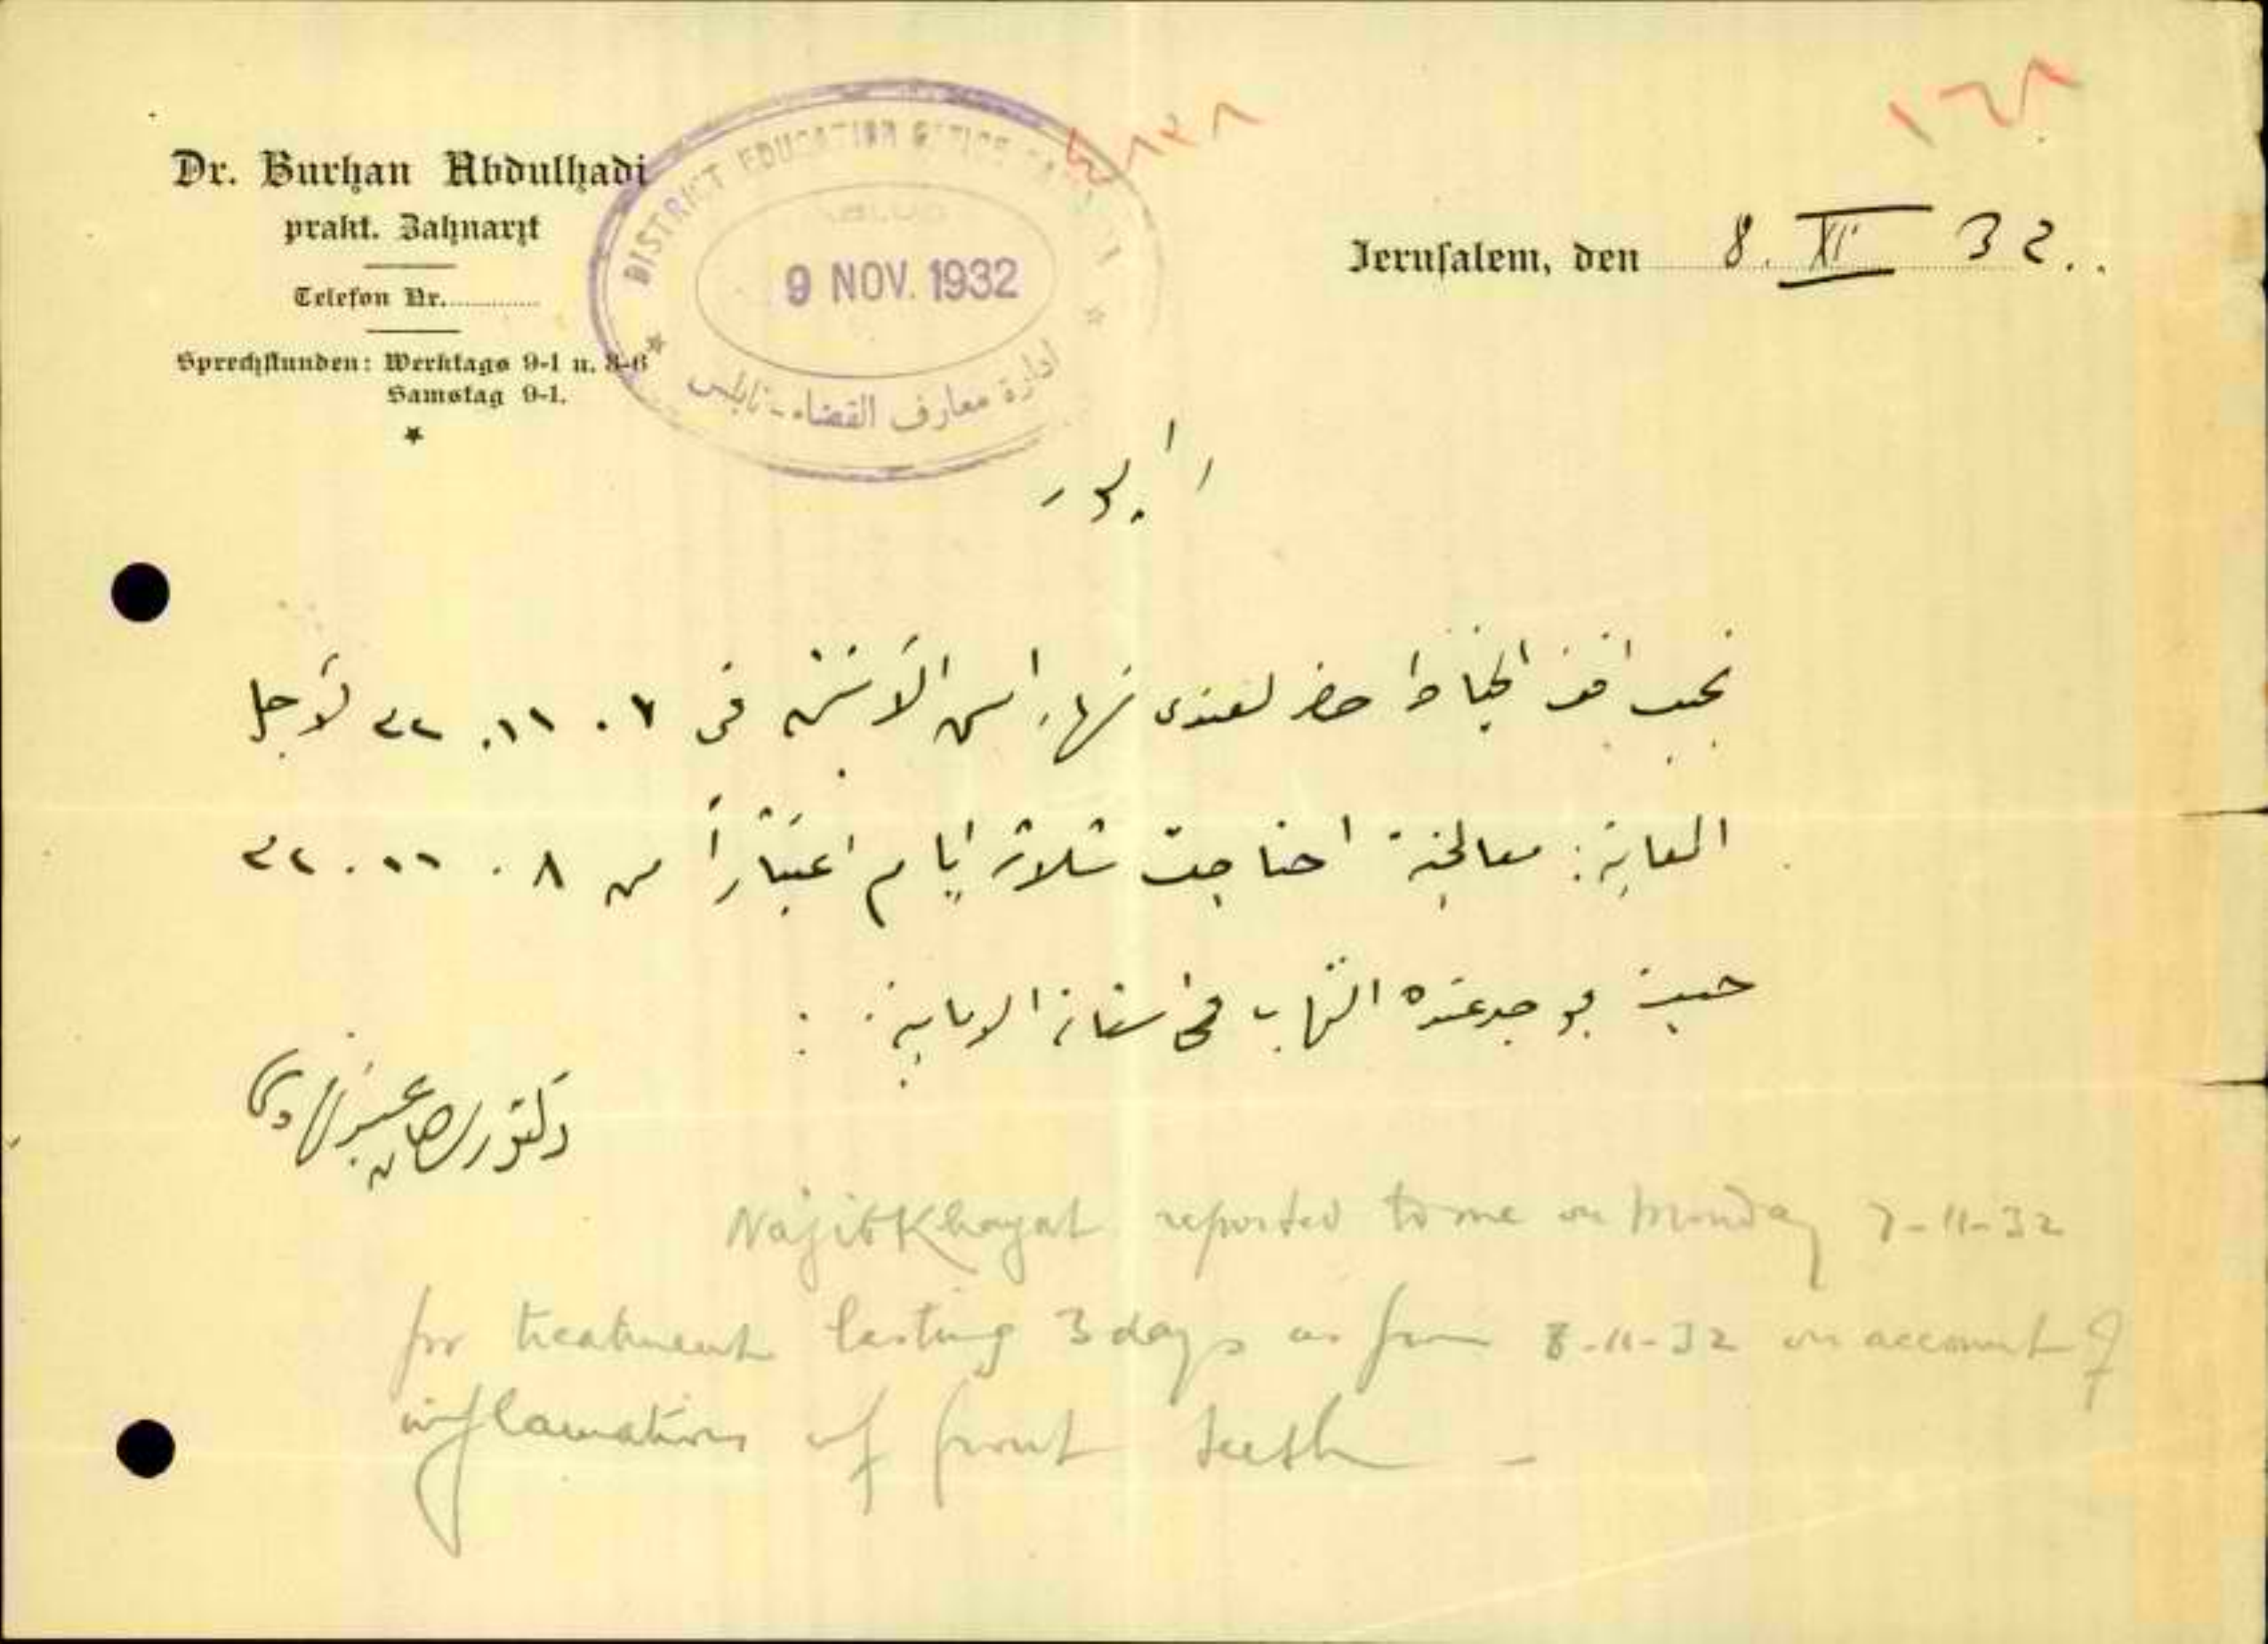 Dr. Burhan Abdulhadi
prakt. Zahnarzt
Telefon Nr.
Sprechstunden: Werktags 9-1 u. 3-6
Samstag 9-1.
DISTRICT EDUCATION OFFICE
9 NOV. 1932
ادارة معارف القضاء - نابلس
١٦٨
Jerusalem, den 8. XI 32.
رابور
نجيب افند الخياط حضر لعندي نهار امس الاثنين في ٧. ١١. ٣٢ لأجل
المعاينة: معالجة احتاجت ثلاثة ايام اعتباراً من ٨. ١١. ٣٢
حيث يوجد عنده التهاب في الامامية:
دكتور برهان عبد الهادي
Najib Khayat reported to me on Monday 7-11-32
for treatment lasting 3 days as from 8-11-32 on account of
inflamation of front teeth -